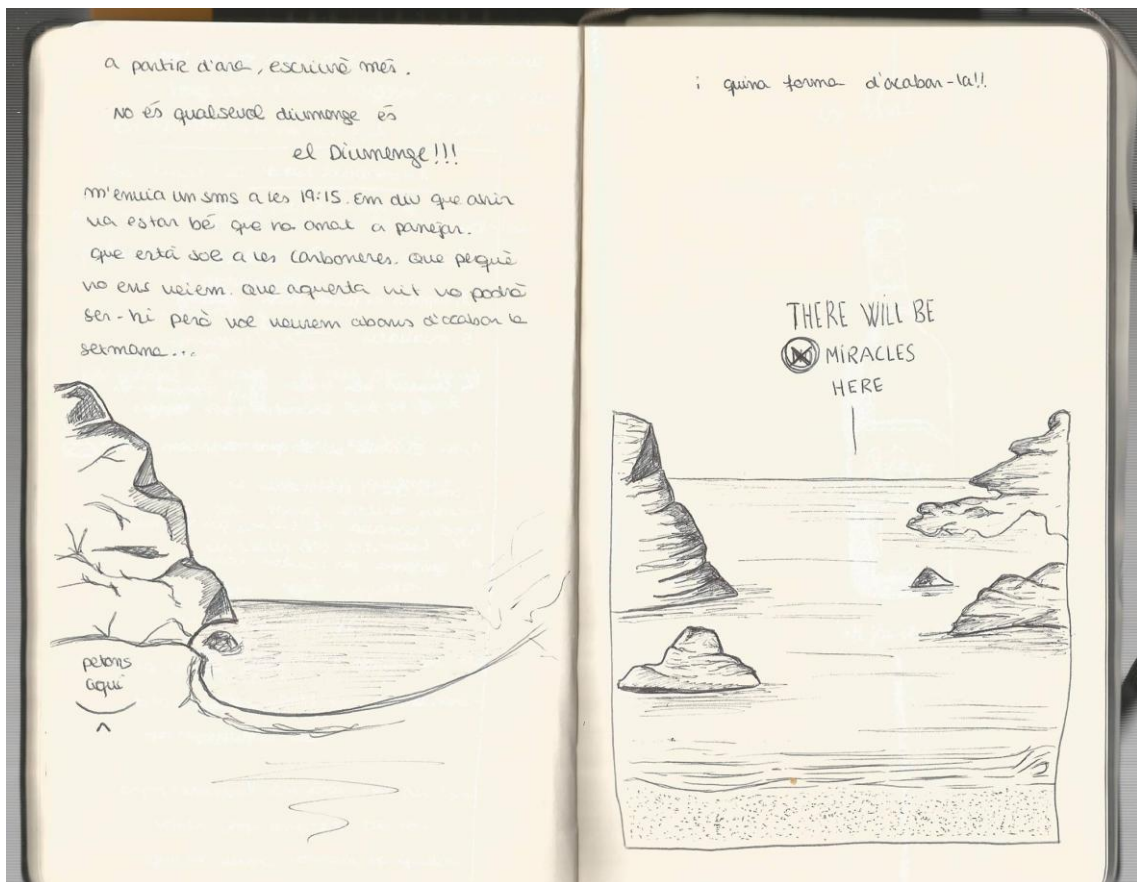 a partir d'ara, escriuré més.
No és qualsevol diumenge és
el Diumenge!!!
m'envia un sms a les 19:15. Em diu que ahir
va estar bé que no anat a panejar.
que està sol a les Carboneres. Que perquè
no ens veiem. Que aquesta nit no podrà
ser-hi però vol veurem abans d'acabar la
setmana...
petons
aquí
i quina forma d'acabar-la!!
THERE WILL BE
MIRACLES
HERE